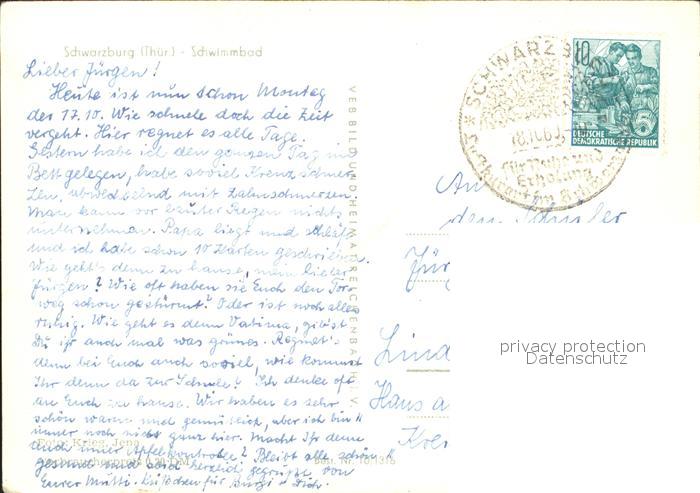 Schwarzburg (Thür.) - Schwimmbad
Lieber Jürgen!
Heute ist nun schon Montag
der 17.10. Wie schnell doch die Zeit
vergeht. Hier regnet es alle Tage.
Gestern habe ich den ganzen Tag im
Bett gelegen, habe soviel Kreuzschmer-
zen, abwechselnd mit Zahnschmerzen.
Man kann vor lauter Regen nichts
unternehmen. Papa liegt und schläft
und ich habe schon 10 Karten geschrieben.
Wie geht's denn zu hause, mein lieber
Jürgen? Wie oft haben sie Euch den Tor-
weg schon gestürmt? Oder ist noch alles
ruhig. Wie geht es denn gibst
Du ihr auch mal was grünes. Regnet's
denn bei Euch auch soviel, wie kommst
Ihr denn da zur Schule? Ich denke oft
an Euch zu hause. Wir haben es sehr
schön warm und gemütlich, aber ich bin
immer noch nicht ganz hier. Macht Ihr denn
auch immer Apfelkontrolle? Bleibt alle schön
gesund und seid herzlich gegrüßt von
Eurer Mutti. Küßchen für Burgi u. Dich.
Foto: Krieg, Jena
Verbraucherpreis 0,20 DM
Best. Nr. 10/1316
VEB BILD UND HEIMAT REICHENBACH I. V.
SCHWARZB
18.10.60
für Ruhe und
Erholung
10
5
DEUTSCHE
DEMOKRATISCHE REPUBLIK
An
den Schüler
Jür
Lind
Haus a
Krei
privacy protection
Datenschutz